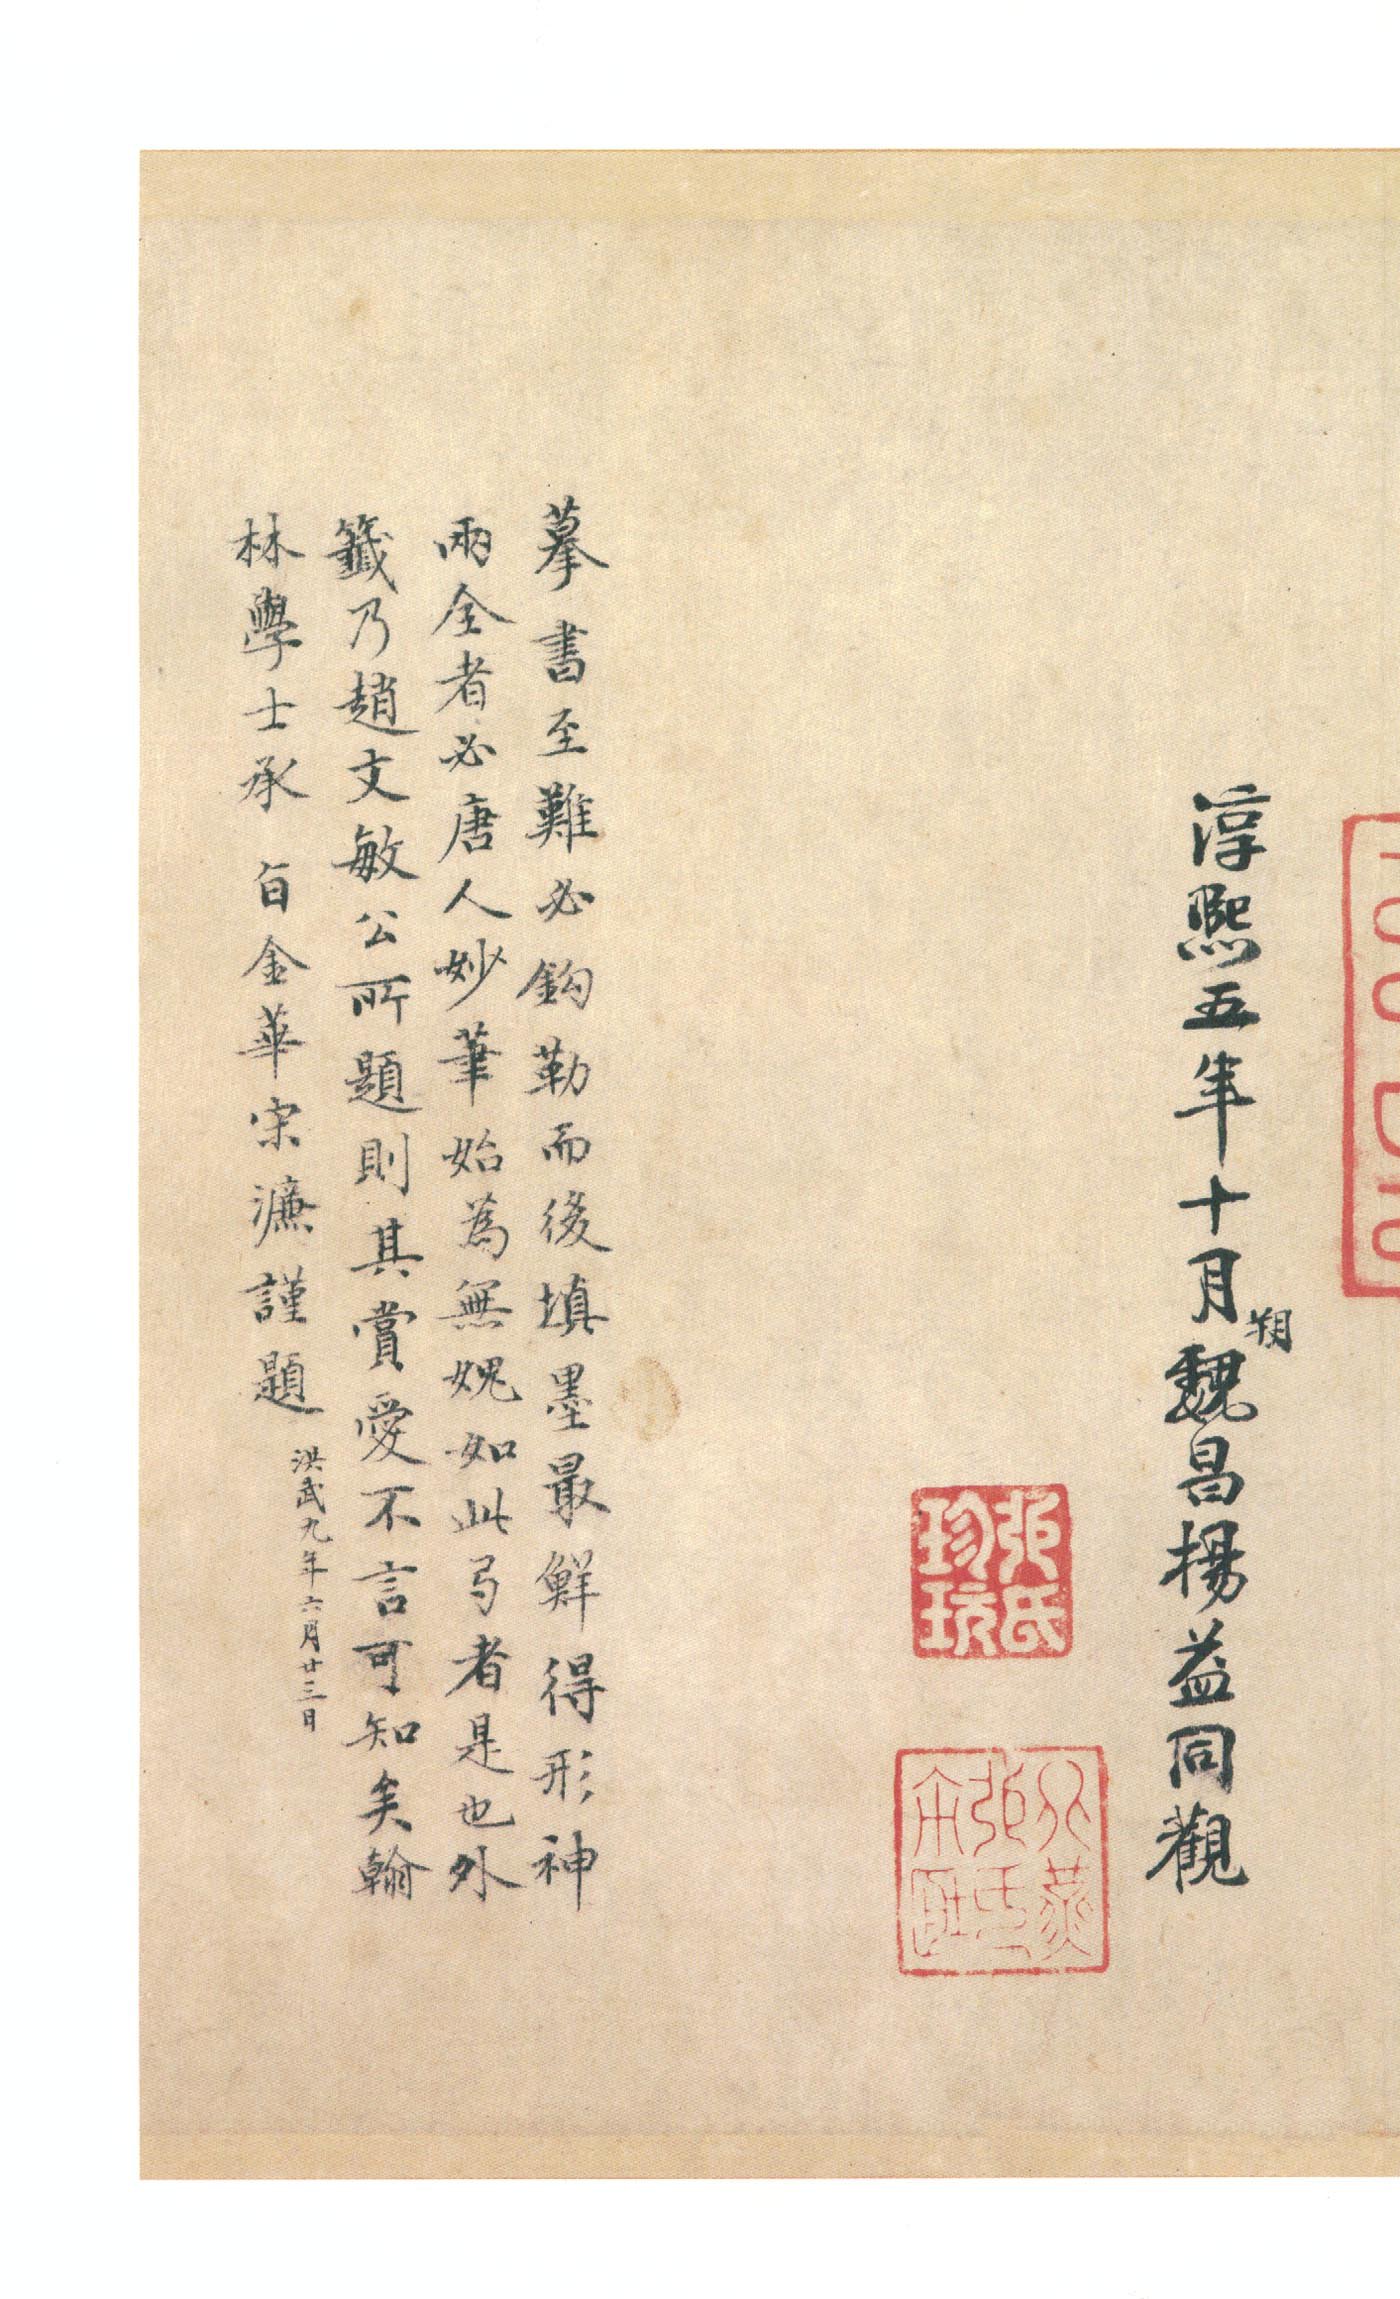 淳熙五年十月朔魏昌揚益同觀
張氏珍玩
北燕張氏
摹書至難必鈎勒而後填墨最鮮得形神
兩全者必唐人妙筆始為無媿如此弓者是也外
籤乃趙文敏公所題則其賞愛不言可知矣翰
林學士承旨金華宋濂謹題
洪武九年六月廿三日